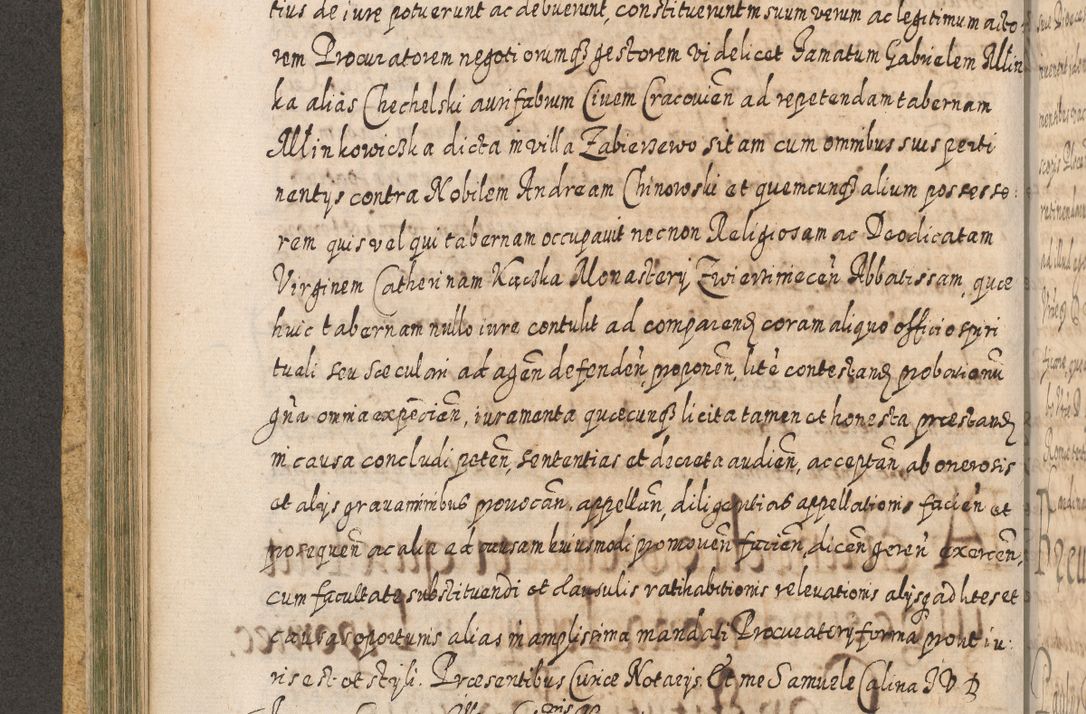 tius de iure potuerunt ac debuerunt, constituerunt in suum verum ac legitimum acto
rem Procuratorem negotiorumq3 gestorem videlicet Famatum Gabrielem Młin
ka aliàs Chechelski aurifabrum Civem Cracovień ad repetendam tabernam
Młinkowiczka dicta in villa Zabierzewo sitam cum omnibus suis perti
nentijs contra Nobilem Andream Chinowski et quemcunq3 alium possesso:
rem quis vel qui tabernam occupavit necnon Religiosam ac Deodicatam
Virginem Catherinam Kączka Monasterij Zwierzinecen̄ Abbatissam, quæ
huic tabernam nullo iure contulit ad comparend coram aliquo officio spiri
tuali seu sæculari ad agen̄ defenden̄, proponen̄, lite contestand probationu
gn̄a omnia expedien̄, iuramenta quæcunq3 licita tamen et honesta præstand
in causa concludi peten̄, sententias et decreta audien̄, acceptan̄, ab onerosis
et alijs gravaminibus provocan̄, appellan̄, diligentias appellationis facien̄ et
prosequen̄ ac alia ad causam huiusmodi promoven̄ facien̄, dicen̄ geren̄ exercen̄,
cum facultate substituendi et clausulis ratihabitionis relevationis alijsq3 ad lites et
causas oportunis alias in amplissima mandati Procuratorij forma prout iu:
ris est et styli. Præsentibus Curiæ Notarijs. Et me Samuele Calina IVD